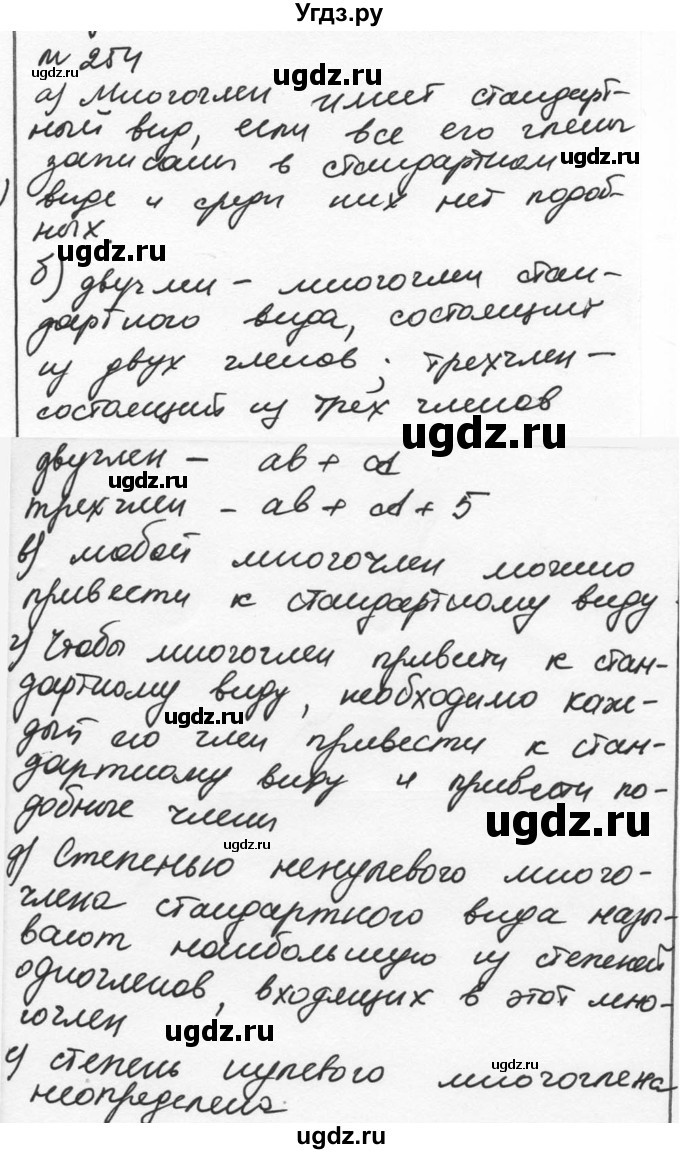 Угдз.ру
№ 254
ugdz.ru
ugdz.ru
а) Многочлен имеет стандарт-
ный вид, если все его члены
записаны в стандартном
ugdz.ru
виде и среди них нет подоб-
ных.
ugdz.ru
б) двучлен – многочлен стан-
дартного вида, состоящий
из двух членов; трехчлен –
состоящий из трёх членов
ugdz.ru
двучлен – ab + cd
ugdz.ru
трехчлен – ab + cd + 5
в) любой многочлен можно
привести к стандартному виду.
г) Чтобы многочлен привести к стан-
дартному виду, необходимо каж-
ugdz.ru
дый его член привести к стан-
дартному виду и привести по-
добные члены
ugdz.ru
ugdz.ru
д) Степенью ненулевого много-
члена стандартного вида назы-
вают наибольшую из степеней
одночленов, входящих в этот мно-
гочлен
ugdz.ru
ugdz.ru
е) степень нулевого многочлена
неопределена
ugdz.ru